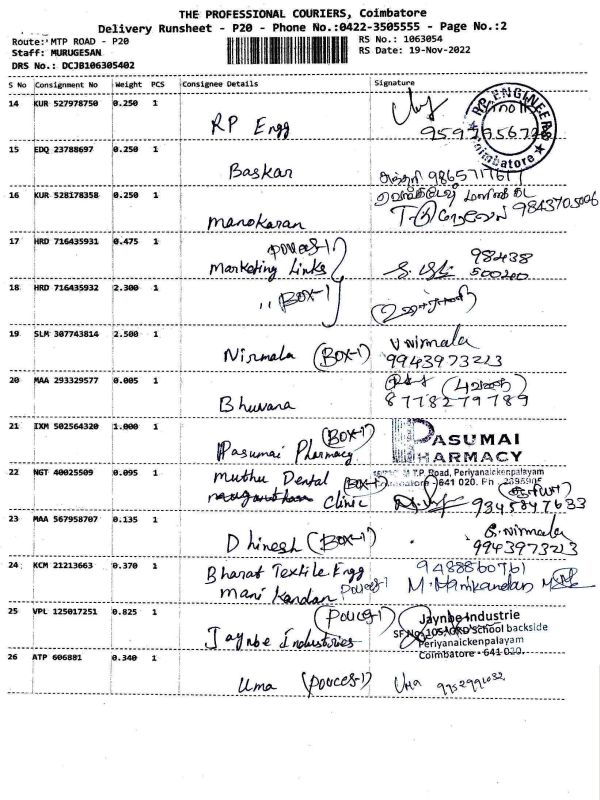 THE PROFESSIONAL COURIERS, Coimbatore
Delivery Runsheet - P20 - Phone No.:0422-3505555 - Page No.:2
Route: MTP ROAD - P20
RS No.: 1063054
Staff: MURUGESAN
RS Date: 19-Nov-2022
DRS No.: DCJB106305402
S No Consignment No Weight PCS Consignee Details Signature
14 KUR 527978750 0.250 1 RP Engg
RP ENGINEER
Coimbatore
15 EDQ 23788697 0.250 1 Baskar
16 KUR 528178358 0.250 1 Manokaran 9843705006
17 HRD 716435931 0.475 1 Marketing Links 98438
500200
18 HRD 716435932 2.300 1 ,, BOX-1
19 SLM 307743814 2.500 1 Nirmala (BOX-1) V Nirmala
9943973223
20 MAA 293329577 0.005 1 Bhuvana 8778279789
21 IXM 502564320 1.000 1 Pasumai Pharmacy (BOX-1)
PASUMAI
PHARMACY
T.P. Road, Periyanaickenpalayam
641 020. Ph
22 NGT 40025509 0.095 1 Muthu Dental (BOX-1)
Clinic 9345847633
23 MAA 567958707 0.135 1 Dhinesh (BOX-1) S. Nirmala
9943973223
24 KCM 21213663 0.370 1 Bharat Textile Engg 9488860761
Mani Kandan M. Manikandan
25 VPL 125017251 0.825 1 Jaynbe Industries
Jaynbe Industrie
School backside
Periyanaickenpalayam
Coimbatore - 641 020.
26 ATP 606881 0.340 1 Uma Uma 9952992032